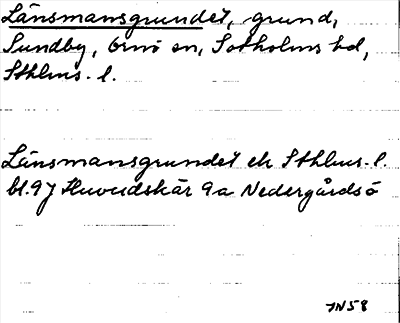 Länsmansgrundet, grund,
Sundby, Ornö sn, Sotholms hd,
Sthlms. l.
Länsmansgrundet ek Sthlms. l.
bl. 97 Huvudskär 9a Nedergårdsö
JN58